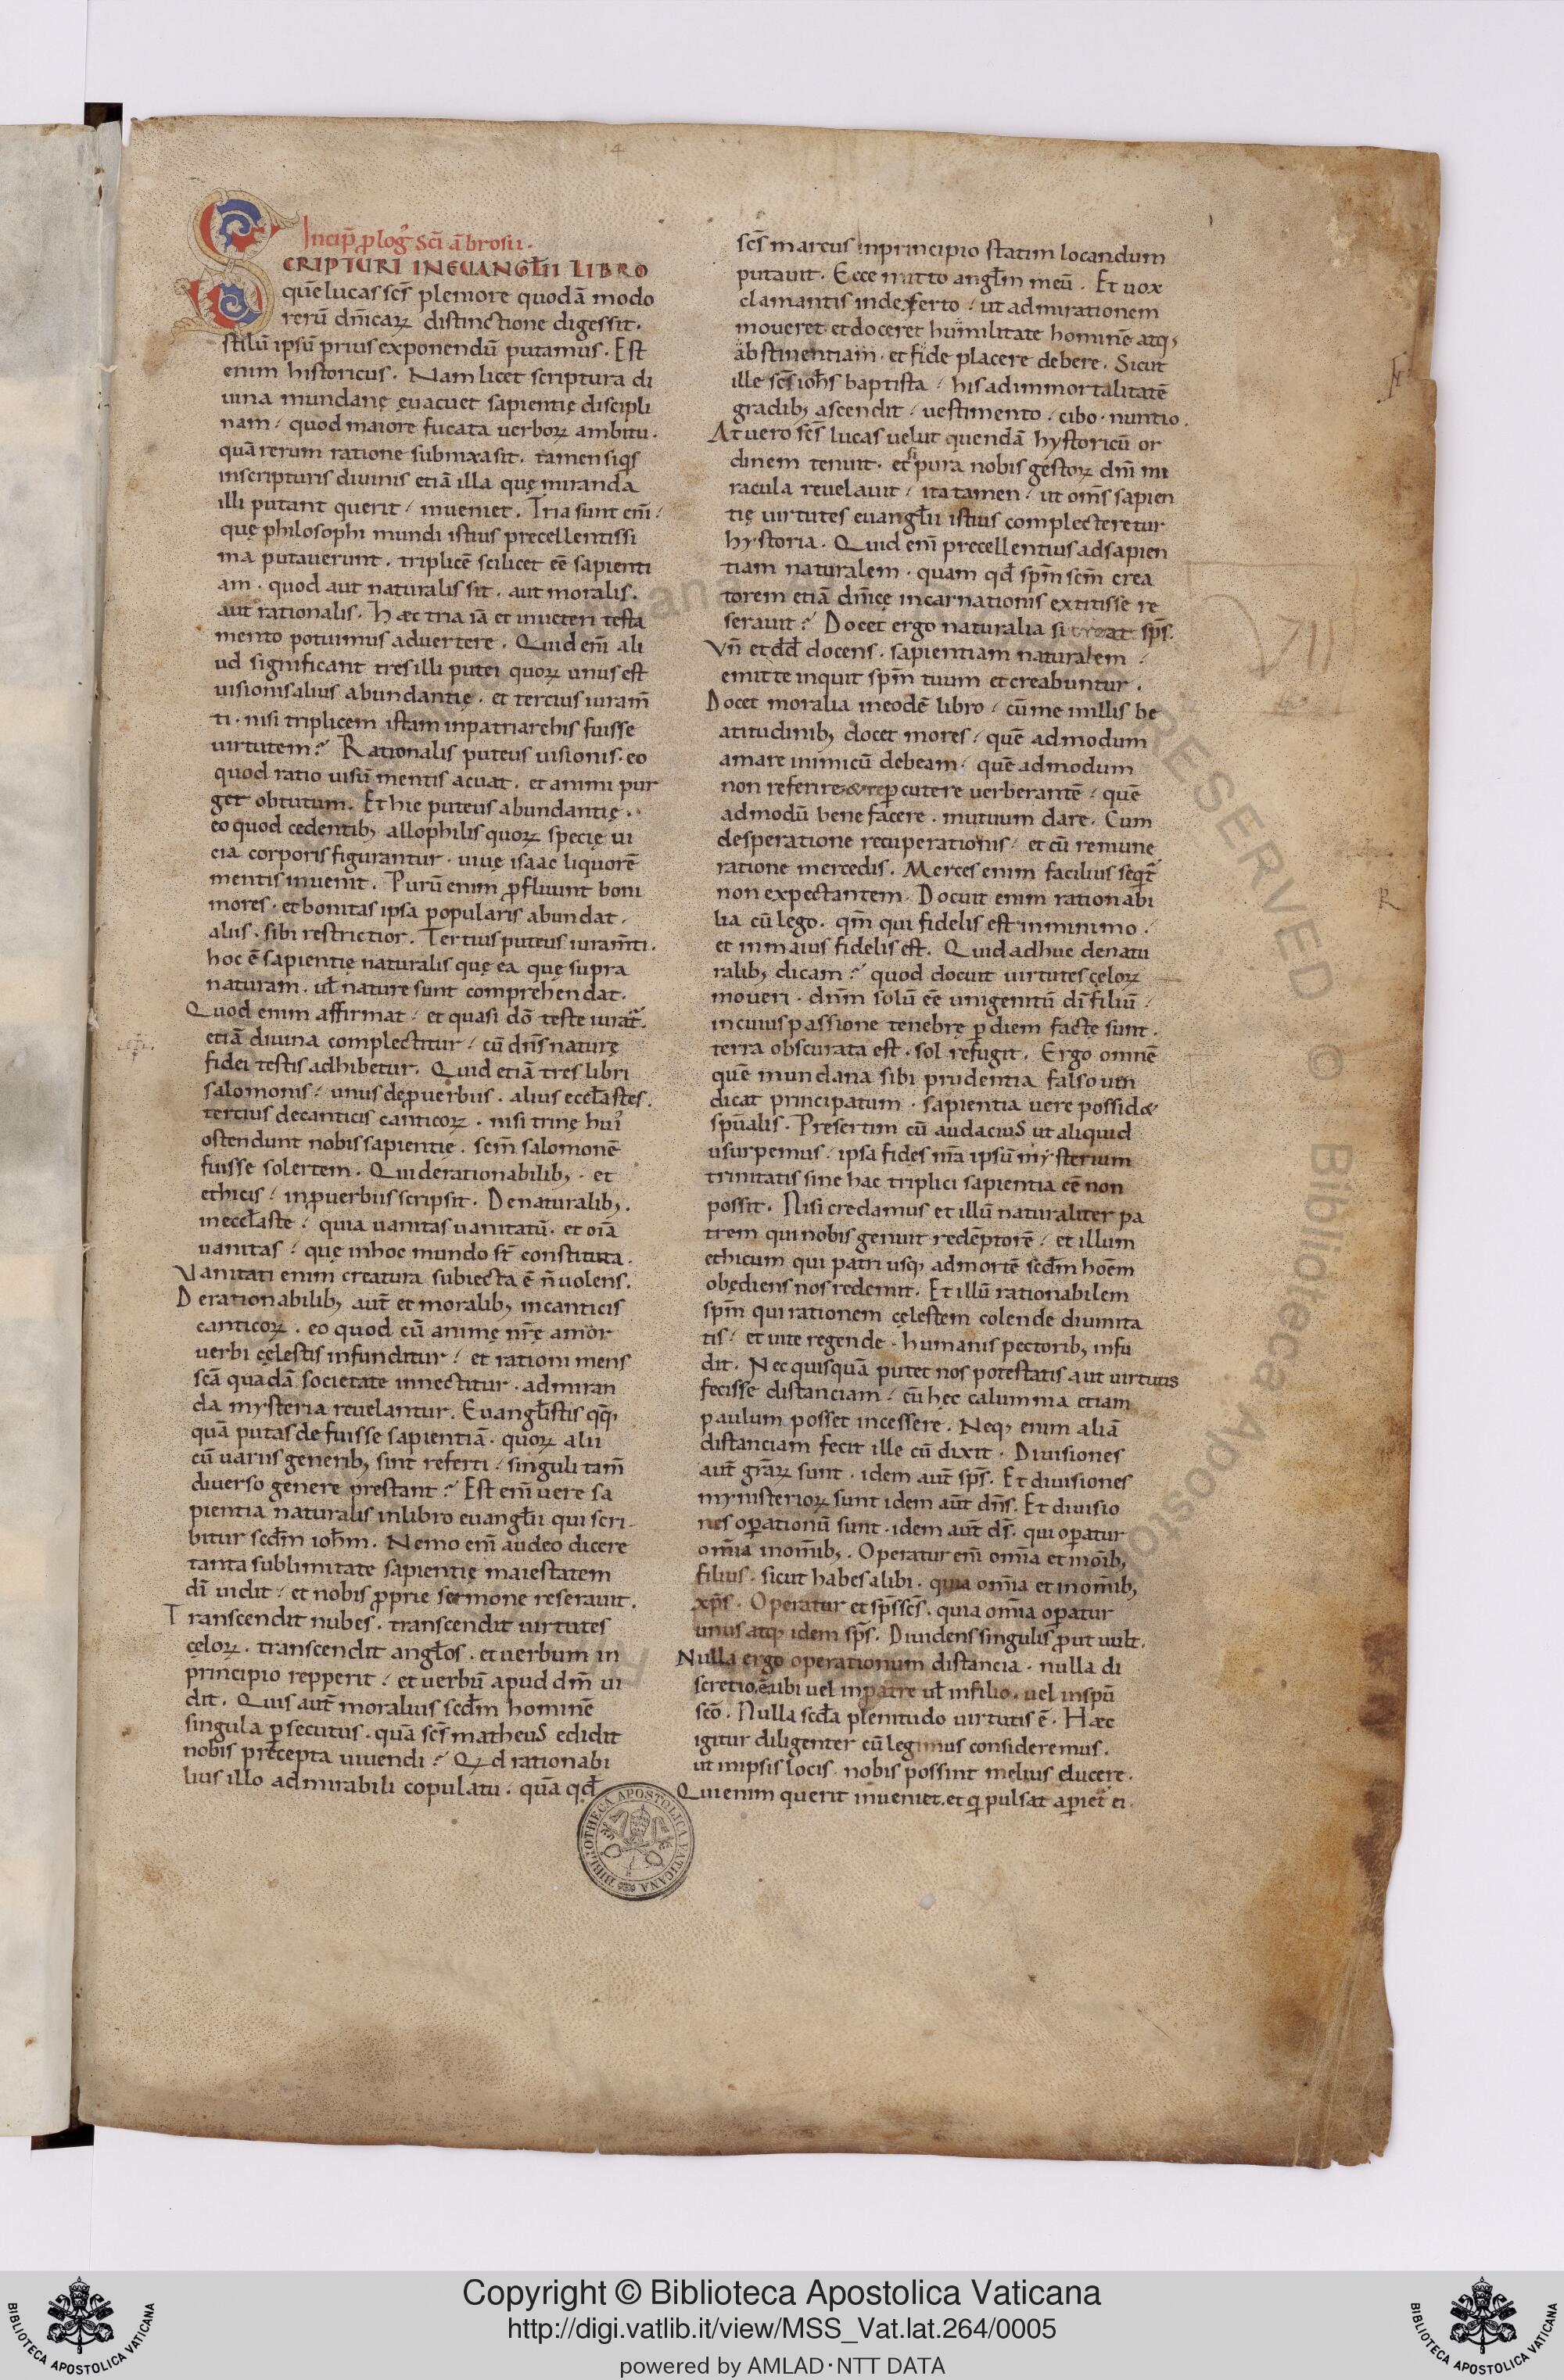 14
Incip̄ ꝓlog᷒ scī ābrosii.
SCRIPTURI IN EUANGL̄II LIBRO
quē lucas scs̄ pleniore quodā modo
rerū dn̄icaꝝ distinctione digessit.
stilū ipsū prius exponendū putamus. Est
enim historicus. Nam licet scriptura di
uina mundanę euacuet sapientię discipli
nam, quod maiore fucata uerboꝝ ambitu.
quā rerum ratione subnixa sit. tamen siqs
in scripturis diuinis etiā illa quę miranda
illi putant querit, inueniet. Tria sunt enī,
quę philosophi mundi istius precellentissi
ma putauerunt. triplicē scilicet ēē sapienti
am. quod aut naturalis sit. aut moralis.
aut rationalis. Hæc tria iā et in ueteri testa
mento potuimus aduertere. Quid enī ali
ud significant tres illi putei quoꝝ unus est
uisionis alius abundantię. et tercius iuram̄
ti. nisi triplicem istam in patriarchis fuisse
uirtutem? Rationalis puteus uisionis. eo
quod ratio uisū mentis acuat. et animi pur
get obtutum. Et hic puteus abundantię.
eo quod cedentib; allophilis quoꝝ specię ui
cia corporis figurantur. uiuę isaac liquorē
mentis inuenit. Purū enim ꝓfluunt boni
mores. et bonitas ipsa popularis abundat.
aliis. sibi restrictior. Tertius puteus iuram̄ti.
hoc ē sapientię naturalis quę ea quę supra
naturam. ul̄ nature sunt comprehendat.
Quod enim affirmat, et quasi dō teste iurat̄.
etiā diuina complectitur, cū dn̄s naturę
fidei testis adhibetur. Quid etiā tres libri
salomonis, unus de ꝓuerbiis. alius eccl̄astes.
tercius de canticis canticoꝝ. nisi trinę hui᷒
ostendunt nobis sapientię. scm̄ salomonē
fuisse solertem. Qui de rationabilib;. et
ethicis, in ꝓuerbiis scripsit. De naturalib;.
in eccl̄aste, quia uanitas uanitatū. et oīa
uanitas, quę in hoc mundo st̄ constituta.
Vanitati enim creatura subiecta ē n̄ uolens.
De rationabilib; aut̄ et moralib; in canticis
canticoꝝ. eo quod cū animę nr̄ę amor
uerbi cęlestis infunditur, et rationi mens
scā quadā societate innectitur. admiran
da mysteria reuelantur. Euangl̄istis qq̨
quā putas defuisse sapientiā. quoꝝ alii
cū uariis generib; sint referti, singuli tam̄
diuerso genere prestant? Est enī uere sa
pientia naturalis in libro euangl̄ii qui scri-
bitur scd̄m ioh̄m. Nemo enī audeo dicere
tanta sublimitate sapientię maiestatem
dī uidit, et nobis ꝓprie sermone reserauit.
Transcendit nubes. transcendit uirtutes
cęloꝝ. transcendit angl̄os. et uerbum in
principio repperit, et uerbū apud dm̄ ui
dit. Quis aut̄ moralius scd̄m hominē
singula ꝑsecutus. quā scs̄ matheus edidit
nobis precepta uiuendi? Qd rationabi
lius illo admirabili copulatu. quā qd̄
scs̄ marcus in principio statim locandum
putauit. Ecce mitto angl̄m meū. Et uox
clamantis in deserto, ut admirationem
moueret et doceret humilitate hominē atq;
abstinentiam. et fide placere debere. Sicut
ille scs̄ ioh̄s baptista, his ad immortalitatē
gradib; ascendit, uestimento, cibo. nuntio.
At uero scs̄ lucas uelut quendā hystoricū or
dinem tenuit. et pura nobis gestoꝝ dn̄i mi
racula reuelauit, ita tamen, ut oms̄ sapien
tię uirtutes euangl̄ii istius complecteretur
hystoria. Quid enī precellentius ad sapien
tiam naturalem. quam qd̄ spm̄ scm̄ crea
torem etiā dn̄icę incarnationis extitisse re
serauit? Docet ergo naturalia si creat sps̄.
Vn̄ et dd̄ docens. sapientiam naturalem,
emitte inquit spm̄ tuum et creabuntur.
Docet moralia in eodē libro, cū me in illis be
atitudinib; docet mores, quē admodum
amare inimicū debeam, quē admodum
non referire & reꝑcutere uerberantē, quē
admodū bene facere. mutuum dare. Cum
desperatione recuperationis, et cū remune
ratione mercedis. Merces enim facilius seqt̄
non expectantem. Docuit enim rationabi
lia cū lego. qm̄ qui fidelis est in minimo,
et in maius fidelis est. Quid adhuc de natu
ralib; dicam? quod docuit uirtutes cęloꝝ
moueri. dn̄m solū ēē unigenitū dī filiū,
in cuius passione tenebrę ꝑ diem factę sunt.
terra obscurata est. sol refugit. Ergo omnē
quē mundana sibi prudentia falso uen
dicat principatum. sapientia uere possid&
spūalis. Presertim cū audacius ut aliquid
usurpemus, ipsa fides nr̄a ipsū mysterium
trinitatis sine hac triplici sapientia ēē non
possit. Nisi credamus et illū naturaliter pa
trem qui nobis genuit redēptorē, et illum
ethicum qui patri usq; ad mortē scd̄m hoēm
obędiens nos redemit. Et illū rationabilem
spm̄ qui rationem cęlestem colende diuinita
tis, et uite regende. humanis pectorib; infu
dit. Nec quisquā putet nos potestatis aut uirtutis
fecisse distanciam, cū hęc calumnia etiam
paulum posset incessere. Neq; enim aliā
distanciam fecit ille cū dixit. Diuisiones
aut̄ gr̄aꝝ sunt. idem aut̄ sps̄. Et diuisiones
mynisterioꝝ sunt idem aut̄ dn̄s. Et diuisio
nes oꝑationū sunt. idem aut̄ ds̄. qui oꝑatur
omīa in omīb;. Operatur enī omīa et in oīb;
filius. sicut habes alibi. quia omīa et in omīb;
xp̄s. Operatur et sps̄ scs̄. quia omīa oꝑatur
unus atq; idem sps̄. Diuidens singulis ꝓut uult.
Nulla ergo operationum distancia. nulla di
scretio ē ubi uel in patre ul̄ in filio. uel in spū
scō. Nulla scd̄a plenitudo uirtutis ē. Hæc
igitur diligenter cū legimus consideremus.
ut in ipsis locis nobis possint melius elucere.
Qui enim querit inueniet. et q pulsat aꝑiet̄ ei.
BIBLIOTHECA APOSTOLICA VATICANA
Copyright © Biblioteca Apostolica Vaticana
http://digi.vatlib.it/view/MSS_Vat.lat.264/0005
powered by AMLAD·NTT DATA
BIBLIOTECA APOSTOLICA VATICANA
BIBLIOTECA APOSTOLICA VATICANA